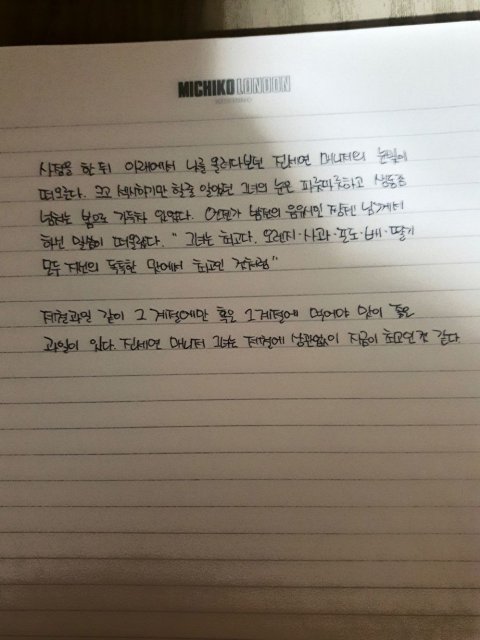 MICHIKO LONDON
사정을 한 뒤 아래에서 나를 올려다보던 진세연 매니저의 눈빛이
떠올랐다. 크고 섹시하기만 한줄 알았던 그녀의 눈은 파릇파릇하고 생동감
넘치는 봄으로 가득차 있었다. 언젠가 남천의 음유시인 장텐 남께서
하던 말씀이 떠올랐다. " 그녀는 최고다. 오렌지·사과·포도·배·딸기
모두 자신의 독특한 맛에서 최고인 것처럼"
제철과일 같이 그 계절에만 혹은 그 계절에 먹어야 맛이 좋은
과일이 있다. 진세연 매니저 그녀는 제철에 상관없이 지금이 최고인 것 같다